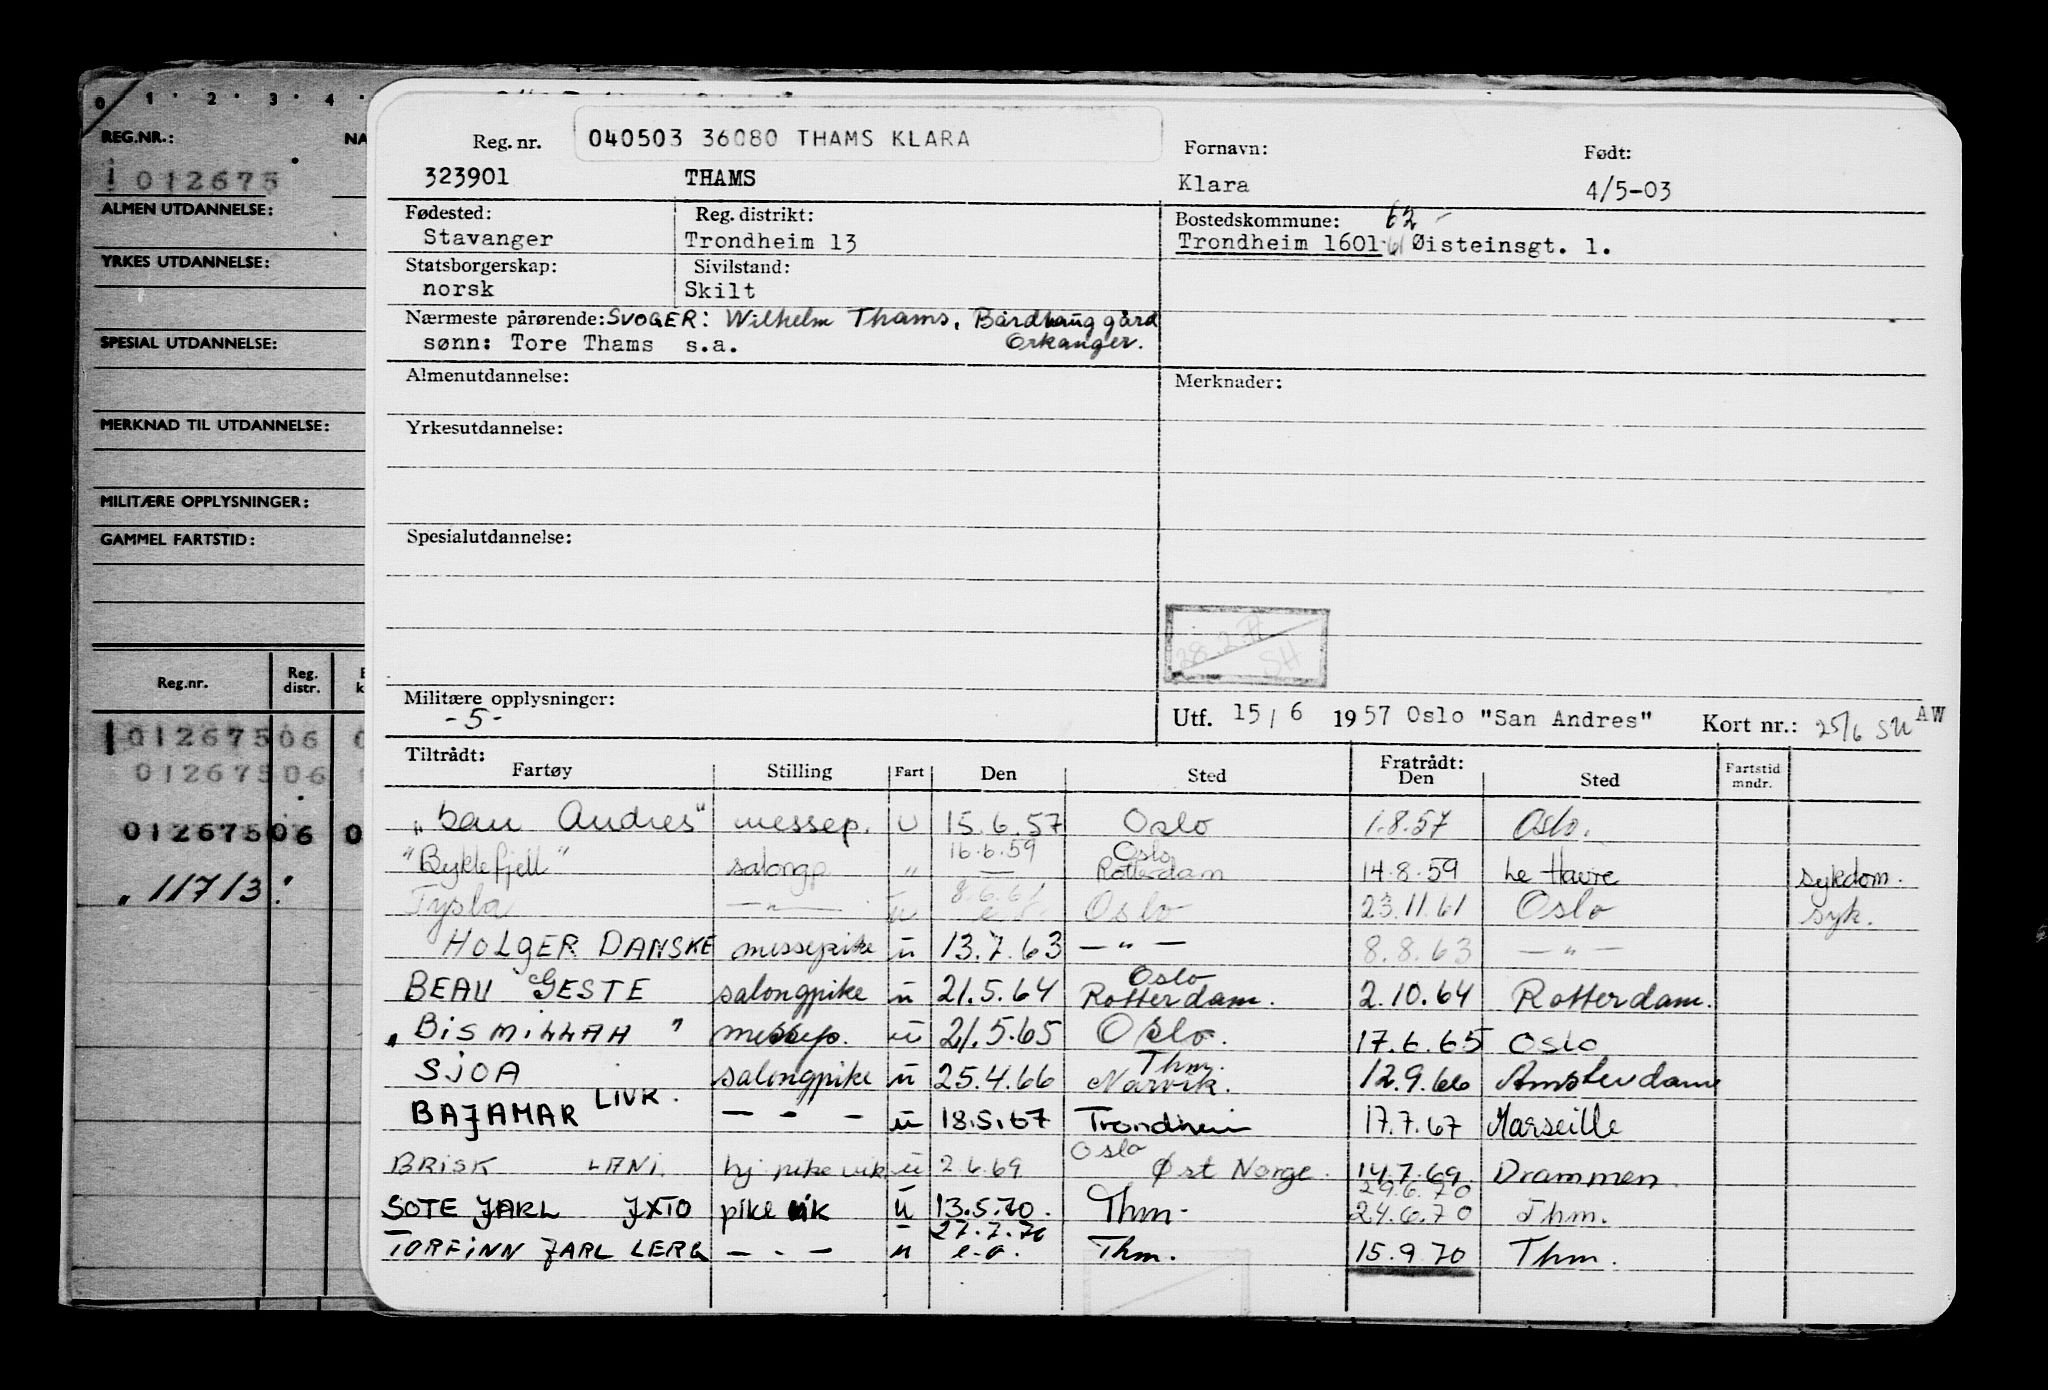 0 1 2 3 4
REG.NR.: NA
012675
ALMEN UTDANNELSE:
YRKES UTDANNELSE:
SPESIAL UTDANNELSE:
MERKNAD TIL UTDANNELSE:
MILITÆRE OPPLYSNINGER:
GAMMEL FARTSTID:
Reg.nr. Reg. distr.
01267506
01267506
01267506 0
11713
Reg. nr. 040503 36080 THAMS KLARA Fornavn: Født:
323901 THAMS Klara 4/5-03
Fødested: Reg. distrikt: Bostedskommune: 62-
Stavanger Trondheim 13 Trondheim 1601-61 Øisteinsgt. 1.
Statsborgerskap: Sivilstand:
norsk Skilt
Nærmeste pårørende: SVOGER: Wilhelm Thams, Bårdhaug gård
sønn: Tore Thams s.a. Orkanger.
Almenutdannelse: Merknader:
Yrkesutdannelse:
Spesialutdannelse:
28.2.71
SH
Militære opplysninger:
-5-
Utf. 15/6 1957 Oslo "San Andres" Kort nr.: 25/6 SH AW
Tiltrådt: Fratrådt:
Fartøy Stilling Fart Den Sted Den Sted Fartstid mndr.
"San Andres" messep. u 15.6.57 Oslo 1.8.57 Oslo.
16.6.59 Oslo
"Byklefjell" salongp. " — Rotterdam 14.8.59 Le Havre sykdom.
8.6.61
Tysla —"— u e.o. Oslo 23.11.61 Oslo syk.
HOLGER DANSKE messepike u 13.7.63 —"— 8.8.63 —"—
Oslo
BEAU GESTE salongpike u 21.5.64 Rotterdam. 2.10.64 Rotterdam.
"BISMILLAH" messep. u 21.5.65 Oslo. 17.6.65 Oslo
Thm.
SJOA salongpike u 25.4.66 Narvik. 12.9.66 Amsterdam
BAJAMAR LIVK. — - — u 18.5.67 Trondheim 17.7.67 Marseille
Oslo
BRISK LANI. hj. pike vik. u 2.6.69 Øst Norge. 14.7.69 Drammen.
29.6.70
SOTE JARL JXTO pike vik u 13.5.70. Thm. 24.6.70 Thm.
27.7.70
TORFINN JARL LERG — . — u e.o. Thm. 15.9.70 Thm.